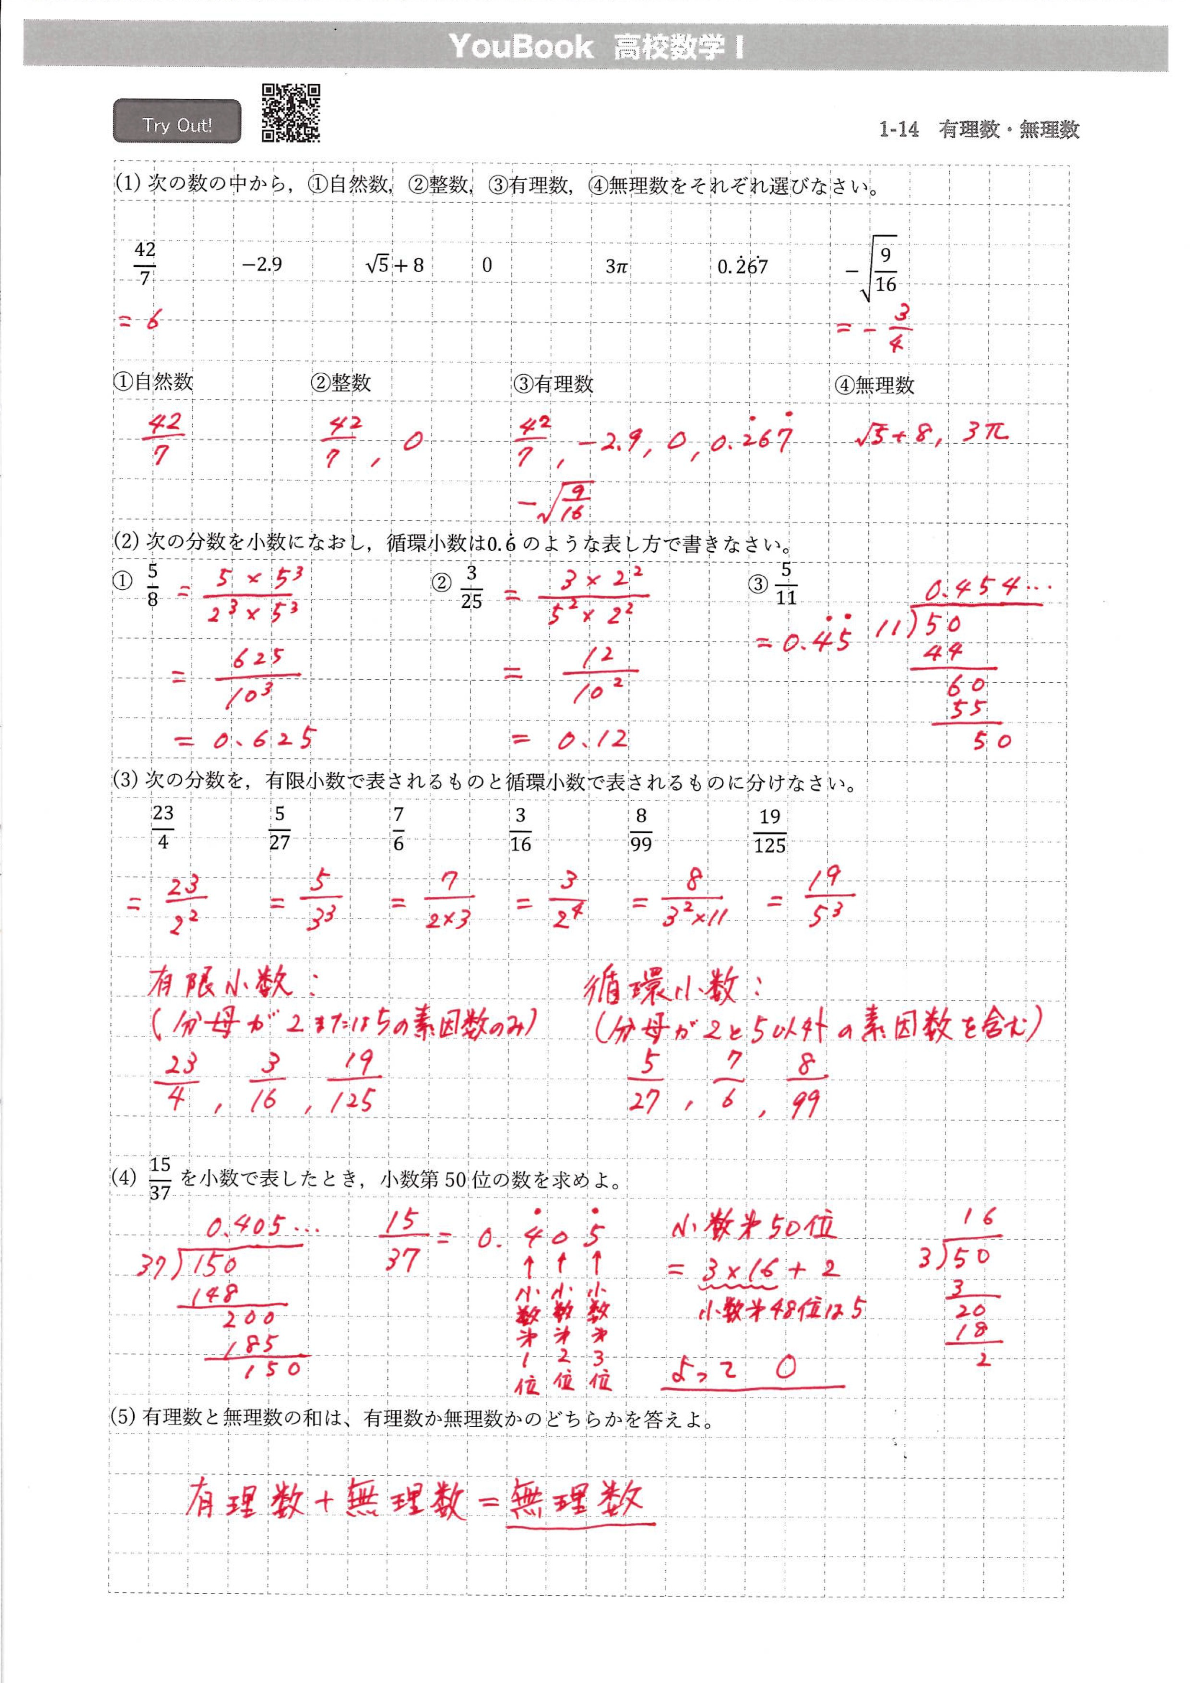 YouBook 高校数学 I
Try Out!
1-14 有理数・無理数
(1) 次の数の中から，①自然数，②整数，③有理数，④無理数をそれぞれ選びなさい。
42/7 −2.9 √5+8 0 3π 0.2̇67̇ −√(9/16)
= 6 = −3/4
①自然数 ②整数 ③有理数 ④無理数
42/7 42/7 , 0 42/7 , −2.9 , 0 , 0.2̇67̇ √5+8 , 3π
−√(9/16)
(2) 次の分数を小数になおし，循環小数は0.6̇ のような表し方で書きなさい。
① 5/8 = (5×5³)/(2³×5³)
= 625/10³
= 0.625
② 3/25 = (3×2²)/(5²×2²)
= 12/10²
= 0.12
③ 5/11
= 0.4̇5̇
0.454…
11)50
44
60
55
50
(3) 次の分数を，有限小数で表されるものと循環小数で表されるものに分けなさい。
23/4 5/27 7/6 3/16 8/99 19/125
= 23/2² = 5/3³ = 7/(2×3) = 3/2⁴ = 8/(3²×11) = 19/5³
有限小数：
(分母が2または5の素因数のみ)
23/4 , 3/16 , 19/125
循環小数：
(分母が2と5以外の素因数を含む)
5/27 , 7/6 , 8/99
(4) 15/37 を小数で表したとき，小数第 50 位の数を求めよ。
0.405…
37)150
148
200
185
150
15/37 = 0.4̇05̇
↑ ↑ ↑
小数第1位 小数第2位 小数第3位
小数第50位
= 3×16+2
小数第48位は5
よって 0
16
3)50
3
20
18
2
(5) 有理数と無理数の和は、有理数か無理数かのどちらかを答えよ。
有理数+無理数=無理数